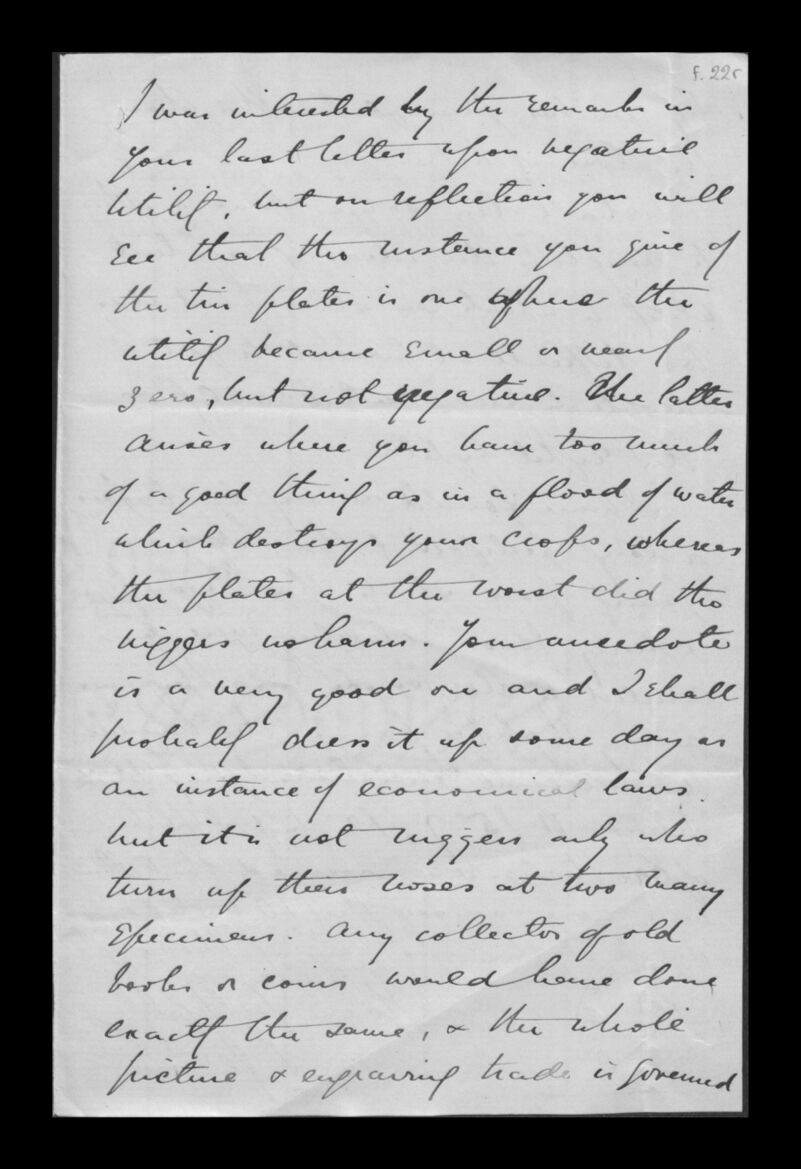 f. 22r
I was interested by the remarks in
your last letter upon negative
utility, but on reflection you will
see that the instance you give of
the tin plates is one where the
utility became small or nearly
zero, but not negative. The latter
arises where you have too much
of a good thing as in a flood of water
which destroys your crops, whereas
the plates at the worst did the
niggers no harm. Your anecdote
is a very good one and I shall
probably dress it up some day as
an instance of economical laws.
but it is not niggers only who
turn up their noses at two many
specimens. Any collector of old
books or coins would have done
exactly the same, & the whole
picture & engraving trade is governed